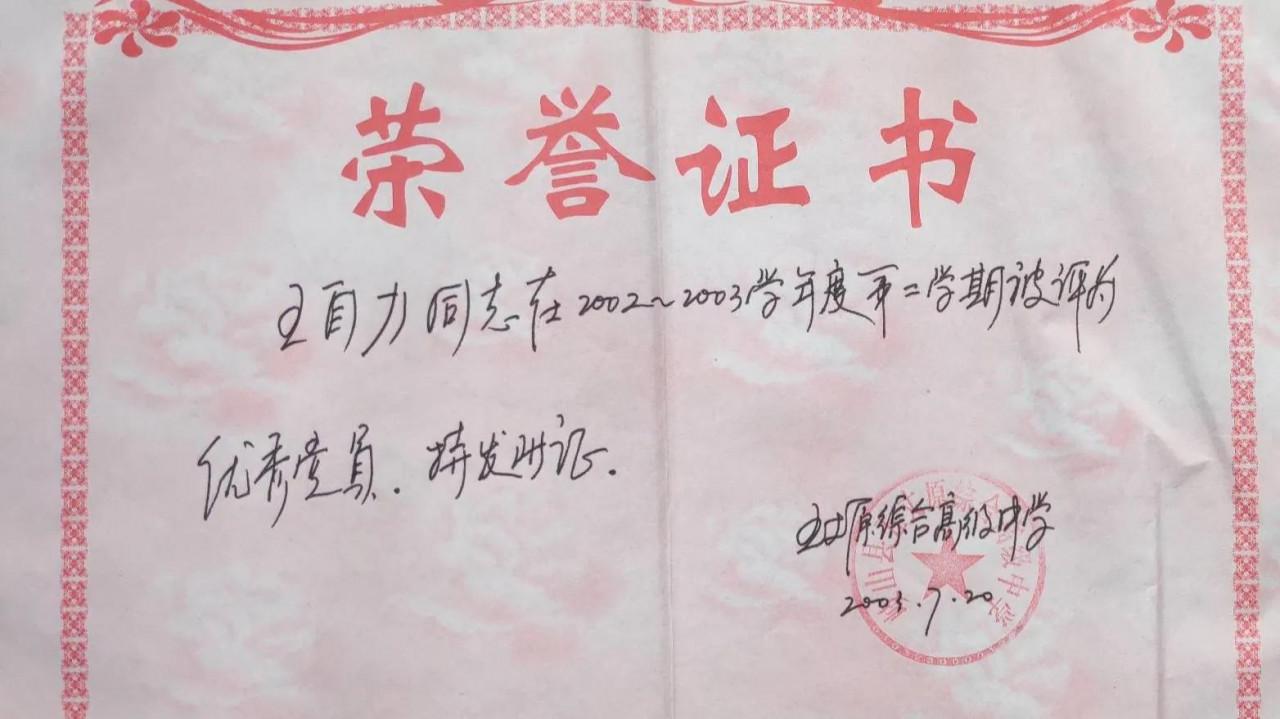 荣誉证书
王自力同志在2002~2003学年度第二学期被评为
优秀党员.特发此证.
综合高级中学
2003.7.20